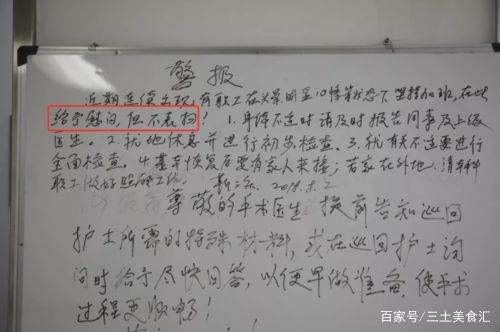 警报
近期连续出现有职工在头晕明显 情等状态下坚持加班,在此
给予慰问,但不表扬!1.身体不适请及时报告同事及上级
医生。2.就地休息并进行初步检查。3.就有关不适要进行
全面检查。4.基本恢复后要有家人来接;若家在外地,请本科
职工做好照顾工作。 2018.
尊敬的手术医生 提前告知巡回
护士所需的特殊材料,或在巡回护士询
问时给予尽快回答,以便早做准备,使手术
过程更顺畅!
百家号/三土美食汇